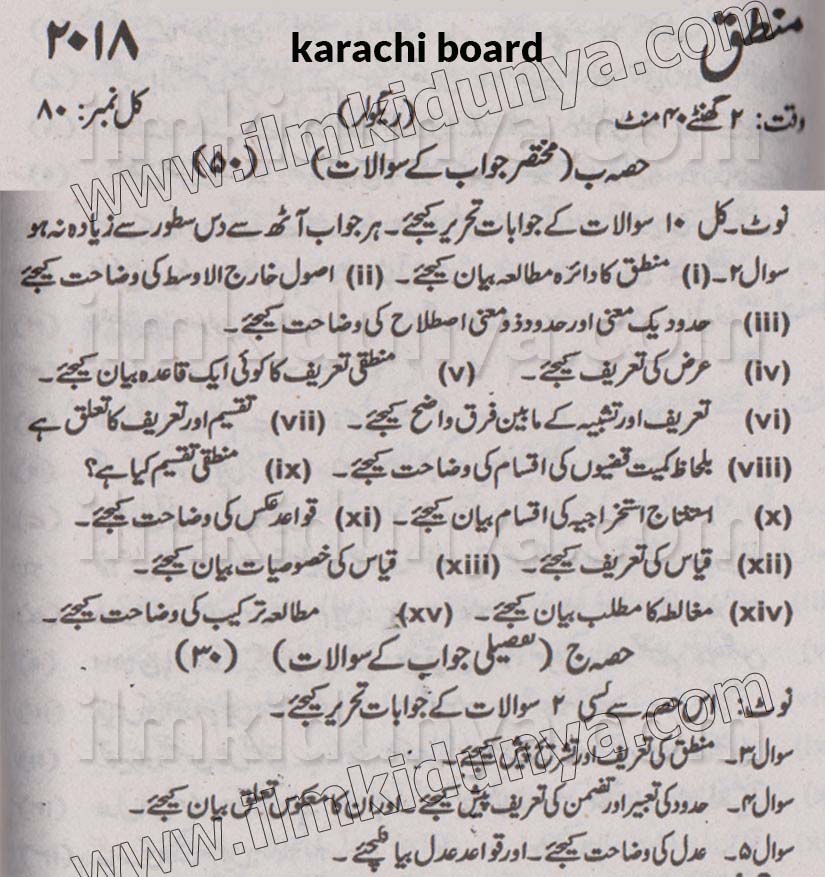 منطق karachi board ۲۰۱۸
وقت: ۲ گھنٹے ۴۰ منٹ (ریگولر) کل نمبر: ۸۰
حصہ ب (مختصر جواب کے سوالات) (۵۰)
نوٹ۔ کل ۱۰ سوالات کے جوابات تحریر کیجئے۔ ہر جواب آٹھ سے دس سطور سے زیادہ نہ ہو
سوال ۲۔ (i) منطق کا دائرہ مطالعہ بیان کیجئے۔ (ii) اصول خارج الاوسط کی وضاحت کیجئے
(iii) حدود یک معنی اور حدود ذو معنی اصطلاح کی وضاحت کیجئے۔
(iv) عرض کی تعریف کیجئے۔ (v) منطقی تعریف کا کوئی ایک قاعدہ بیان کیجئے۔
(vi) تعریف اور تشبیہ کے مابین فرق واضح کیجئے۔ (vii) تقسیم اور تعریف کا تعلق ہے
(viii) بلحاظ کمیت قضیوں کی اقسام کی وضاحت کیجئے۔ (ix) منطقی تقسیم کیا ہے؟
(x) استنتاج استخراجیہ کی اقسام بیان کیجئے۔ (xi) قواعد عکس کی وضاحت کیجئے۔
(xii) قیاس کی تعریف کیجئے۔ (xiii) قیاس کی خصوصیات بیان کیجئے۔
(xiv) مغالطہ کا مطلب بیان کیجئے۔ (xv) مطالعہ ترکیب کی وضاحت کیجئے۔
حصہ ج (تفصیلی جواب کے سوالات) (۳۰)
نوٹ: اس حصہ سے کسی ۲ سوالات کے جوابات تحریر کیجئے۔
سوال ۳۔ منطق کی تعریف اور تشریح پیش کیجئے۔
سوال ۴۔ حدود کی تعبیر اور تضمن کی تعریف پیش کیجئے۔ اور ان کا معکوس تعلق بیان کیجئے۔
سوال ۵۔ عدل کی وضاحت کیجئے۔ اور قواعد عدل بیا کیجئے۔
www.ilmkidunya.com
www.ilmkidunya.com
ilmkidunya.com
ilmkidunya.com
ilmkidunya.com
ilmkidunya.com